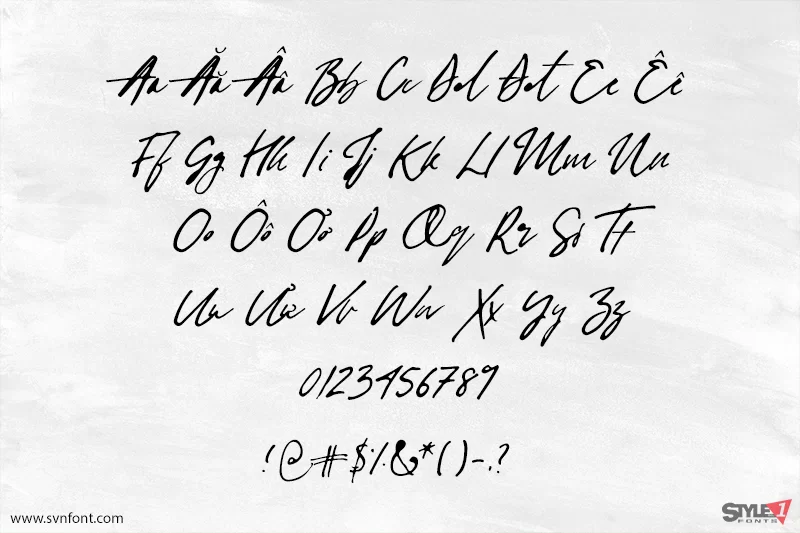 Aa Ăă Ââ Bb Cc Dd Đđ Ee Êê
Ff Gg Hh Ii Jj Kk Ll Mm Nn
Oo Ôô Ơơ Pp Qq Rr Ss Tt
Uu Ưư Vv Ww Xx Yy Zz
0123456789
!@#$%&*()-.,?
www.svnfont.com
STYLE 1
FONTS